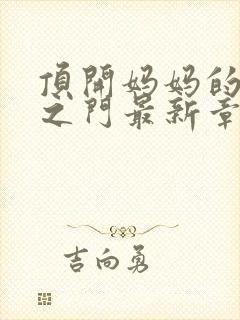 頂開妈妈的
之門最新章
吉向勇